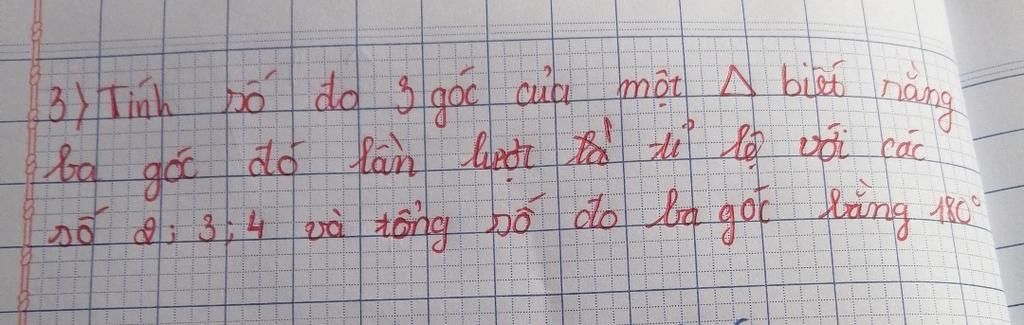 3) Tính số đo 3 góc của một Δ biết rằng
ba góc đó lần lượt tỉ lệ với các
số 2; 3; 4 và tổng số đo ba góc bằng 180°